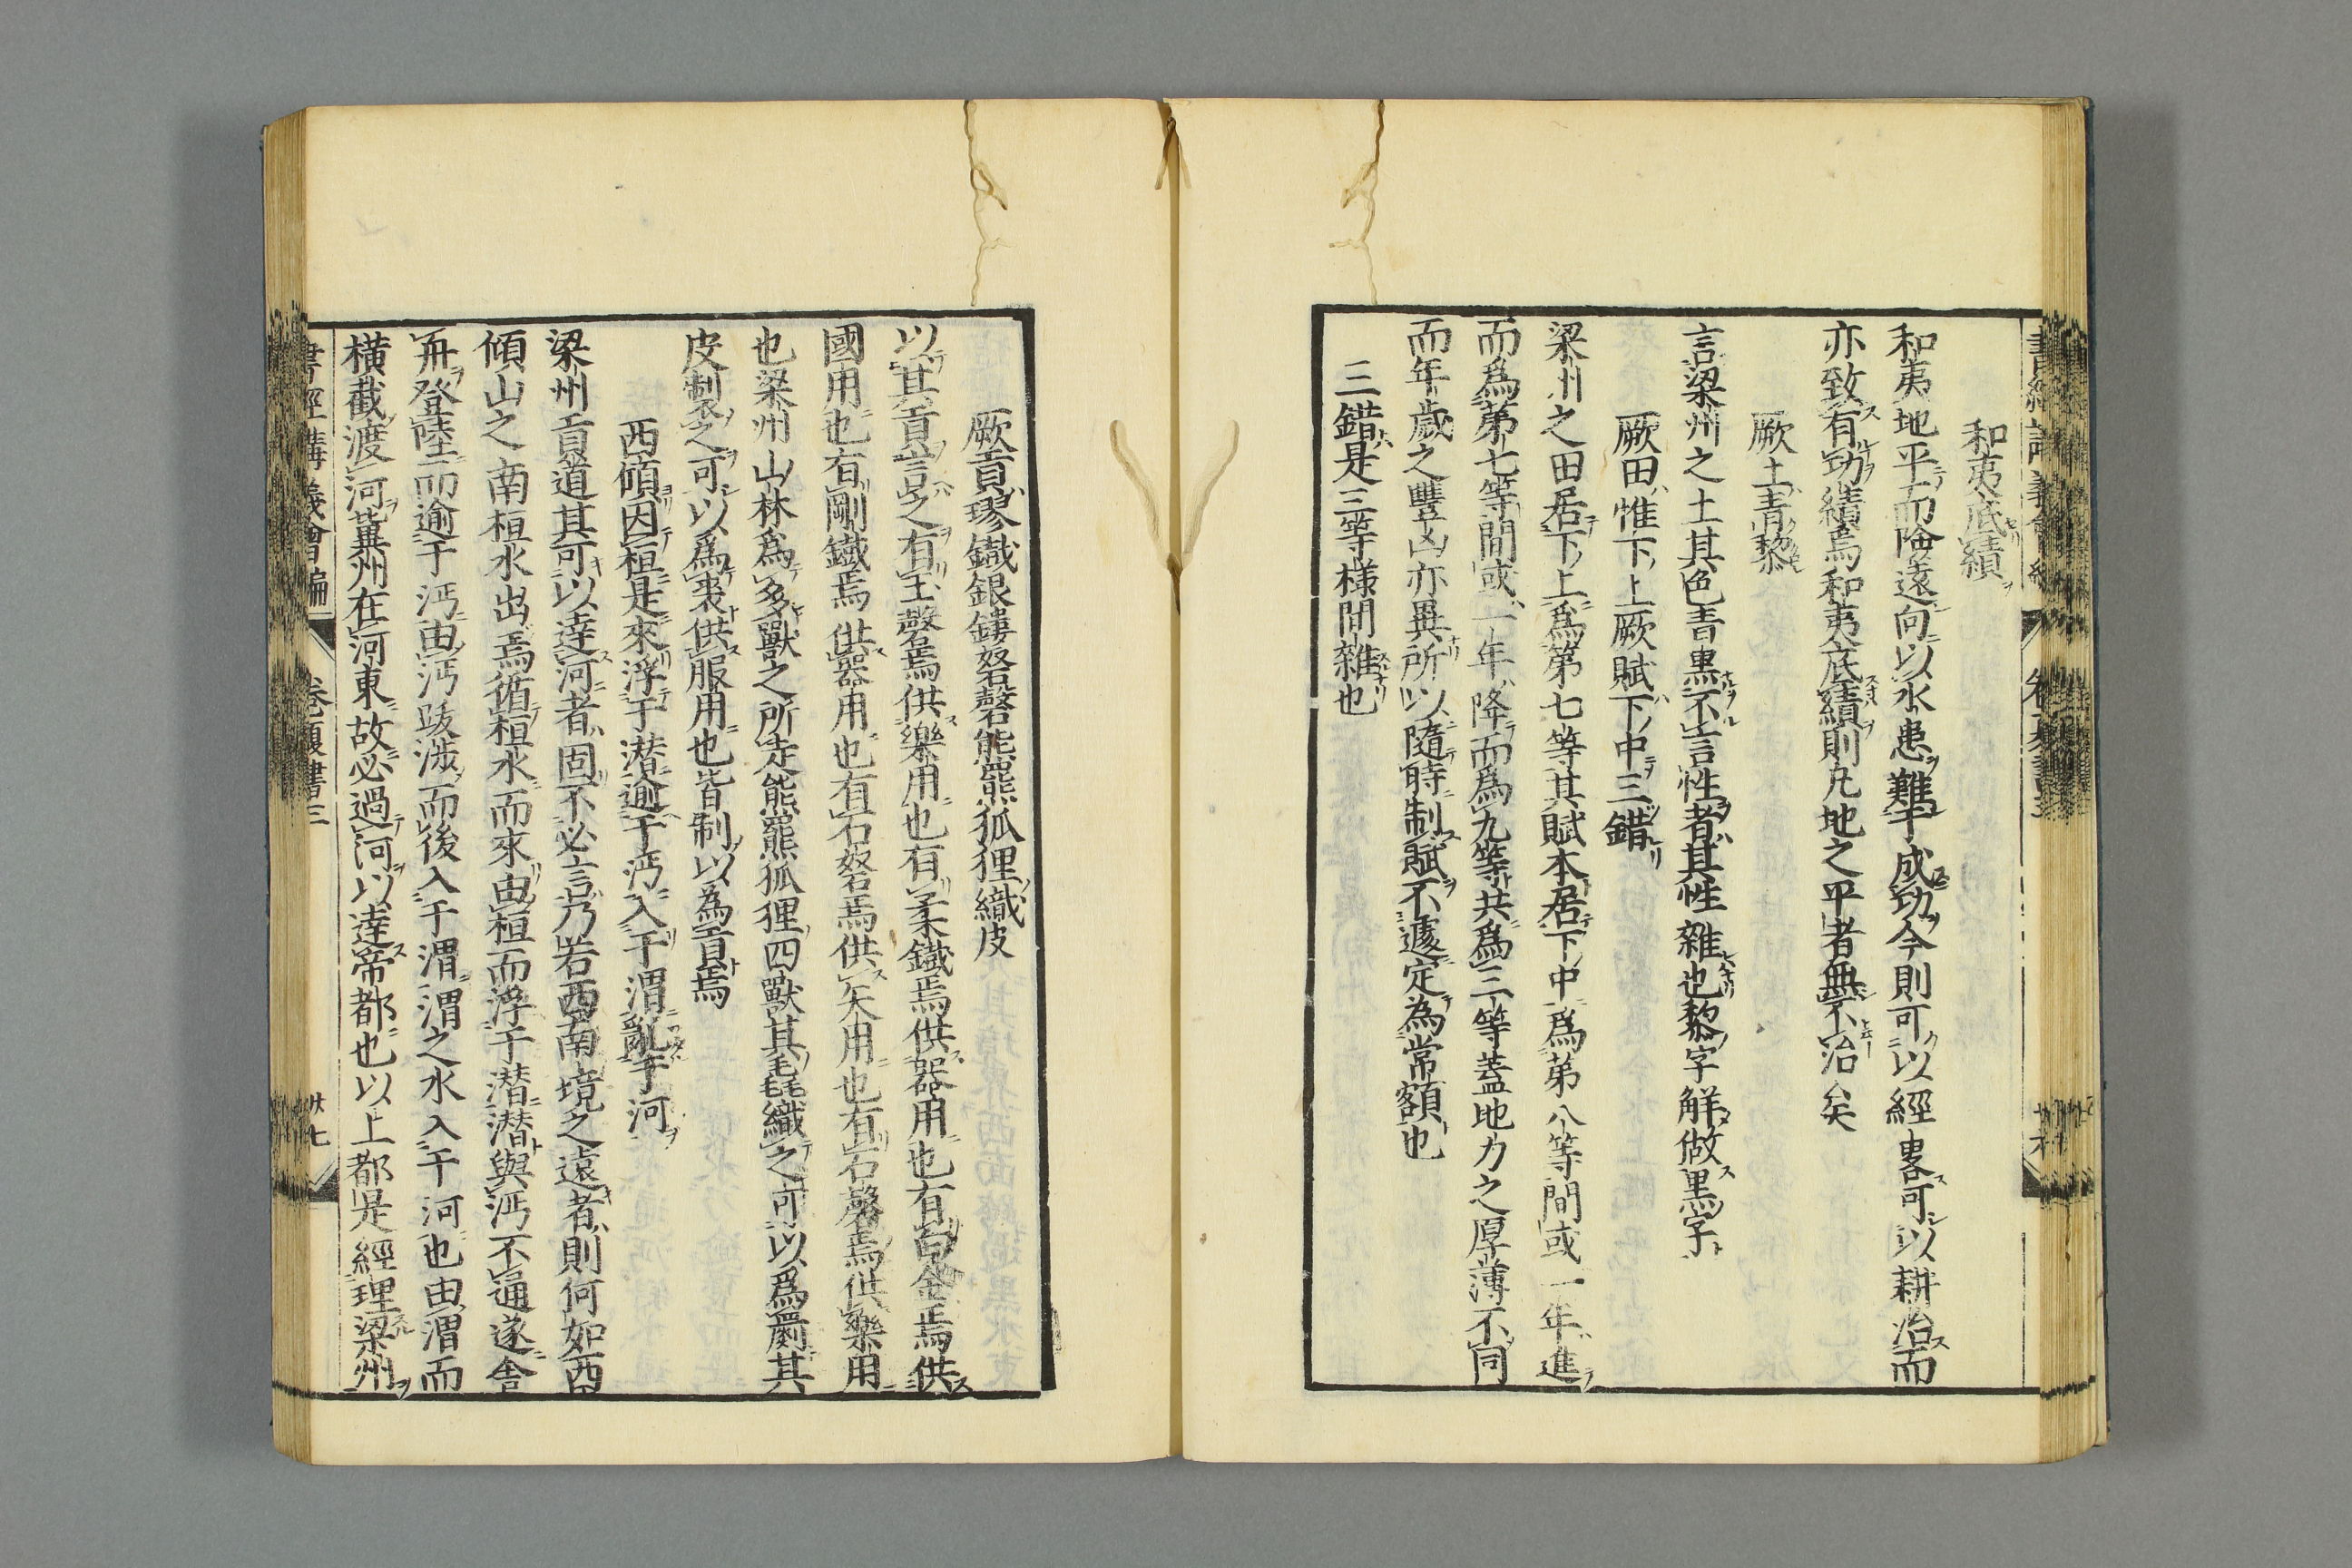 和夷底績
和夷地平而險遠向以水患難于成功今則可以經畧可以耕治而
亦致有功績焉和夷今底績則凡地之平者無不治矣
厥土青黎
言梁州之土其色青黑不言性者其性雜也黎字解做黑字
厥田惟下上厥賦下中三錯
梁州之田居下上爲第七等其賦本居下中爲第八等間或一年進
而爲第七等間或一年降而爲九等共爲三等蓋地力之厚薄不同
而年歲之豐凶亦異所以隨時制賦不遽定為常額也
三錯是三等樣間雜也
厥貢璆鐵銀鏤砮磬熊羆狐狸織皮
以其貢言之有玉磬焉供樂用也有柔鐵焉供器用也有白金焉供
國用也有剛鐵焉供器用也有石砮焉供矢用也有石磬焉供樂用
也梁州山林爲多獸之所走熊羆狐狸四獸其毳毛織之可以爲罽其
皮製之可以爲裘供服用也皆制以為貢焉
西傾因桓是來浮于潜逾于沔入于渭亂于河
梁州貢道其可以達河者固不必言乃若西南境之遠者則何如西
傾山之南桓水出焉循桓水而來由桓而浮于潜潜與沔不通遂舍
舟登陸而逾于沔由沔跋涉而後入于渭渭之水入于河也由渭而
橫截渡河冀州在河東故必過河以達帝都也以上都是經理梁州
書經講義會編
卷 夏書三
廿七